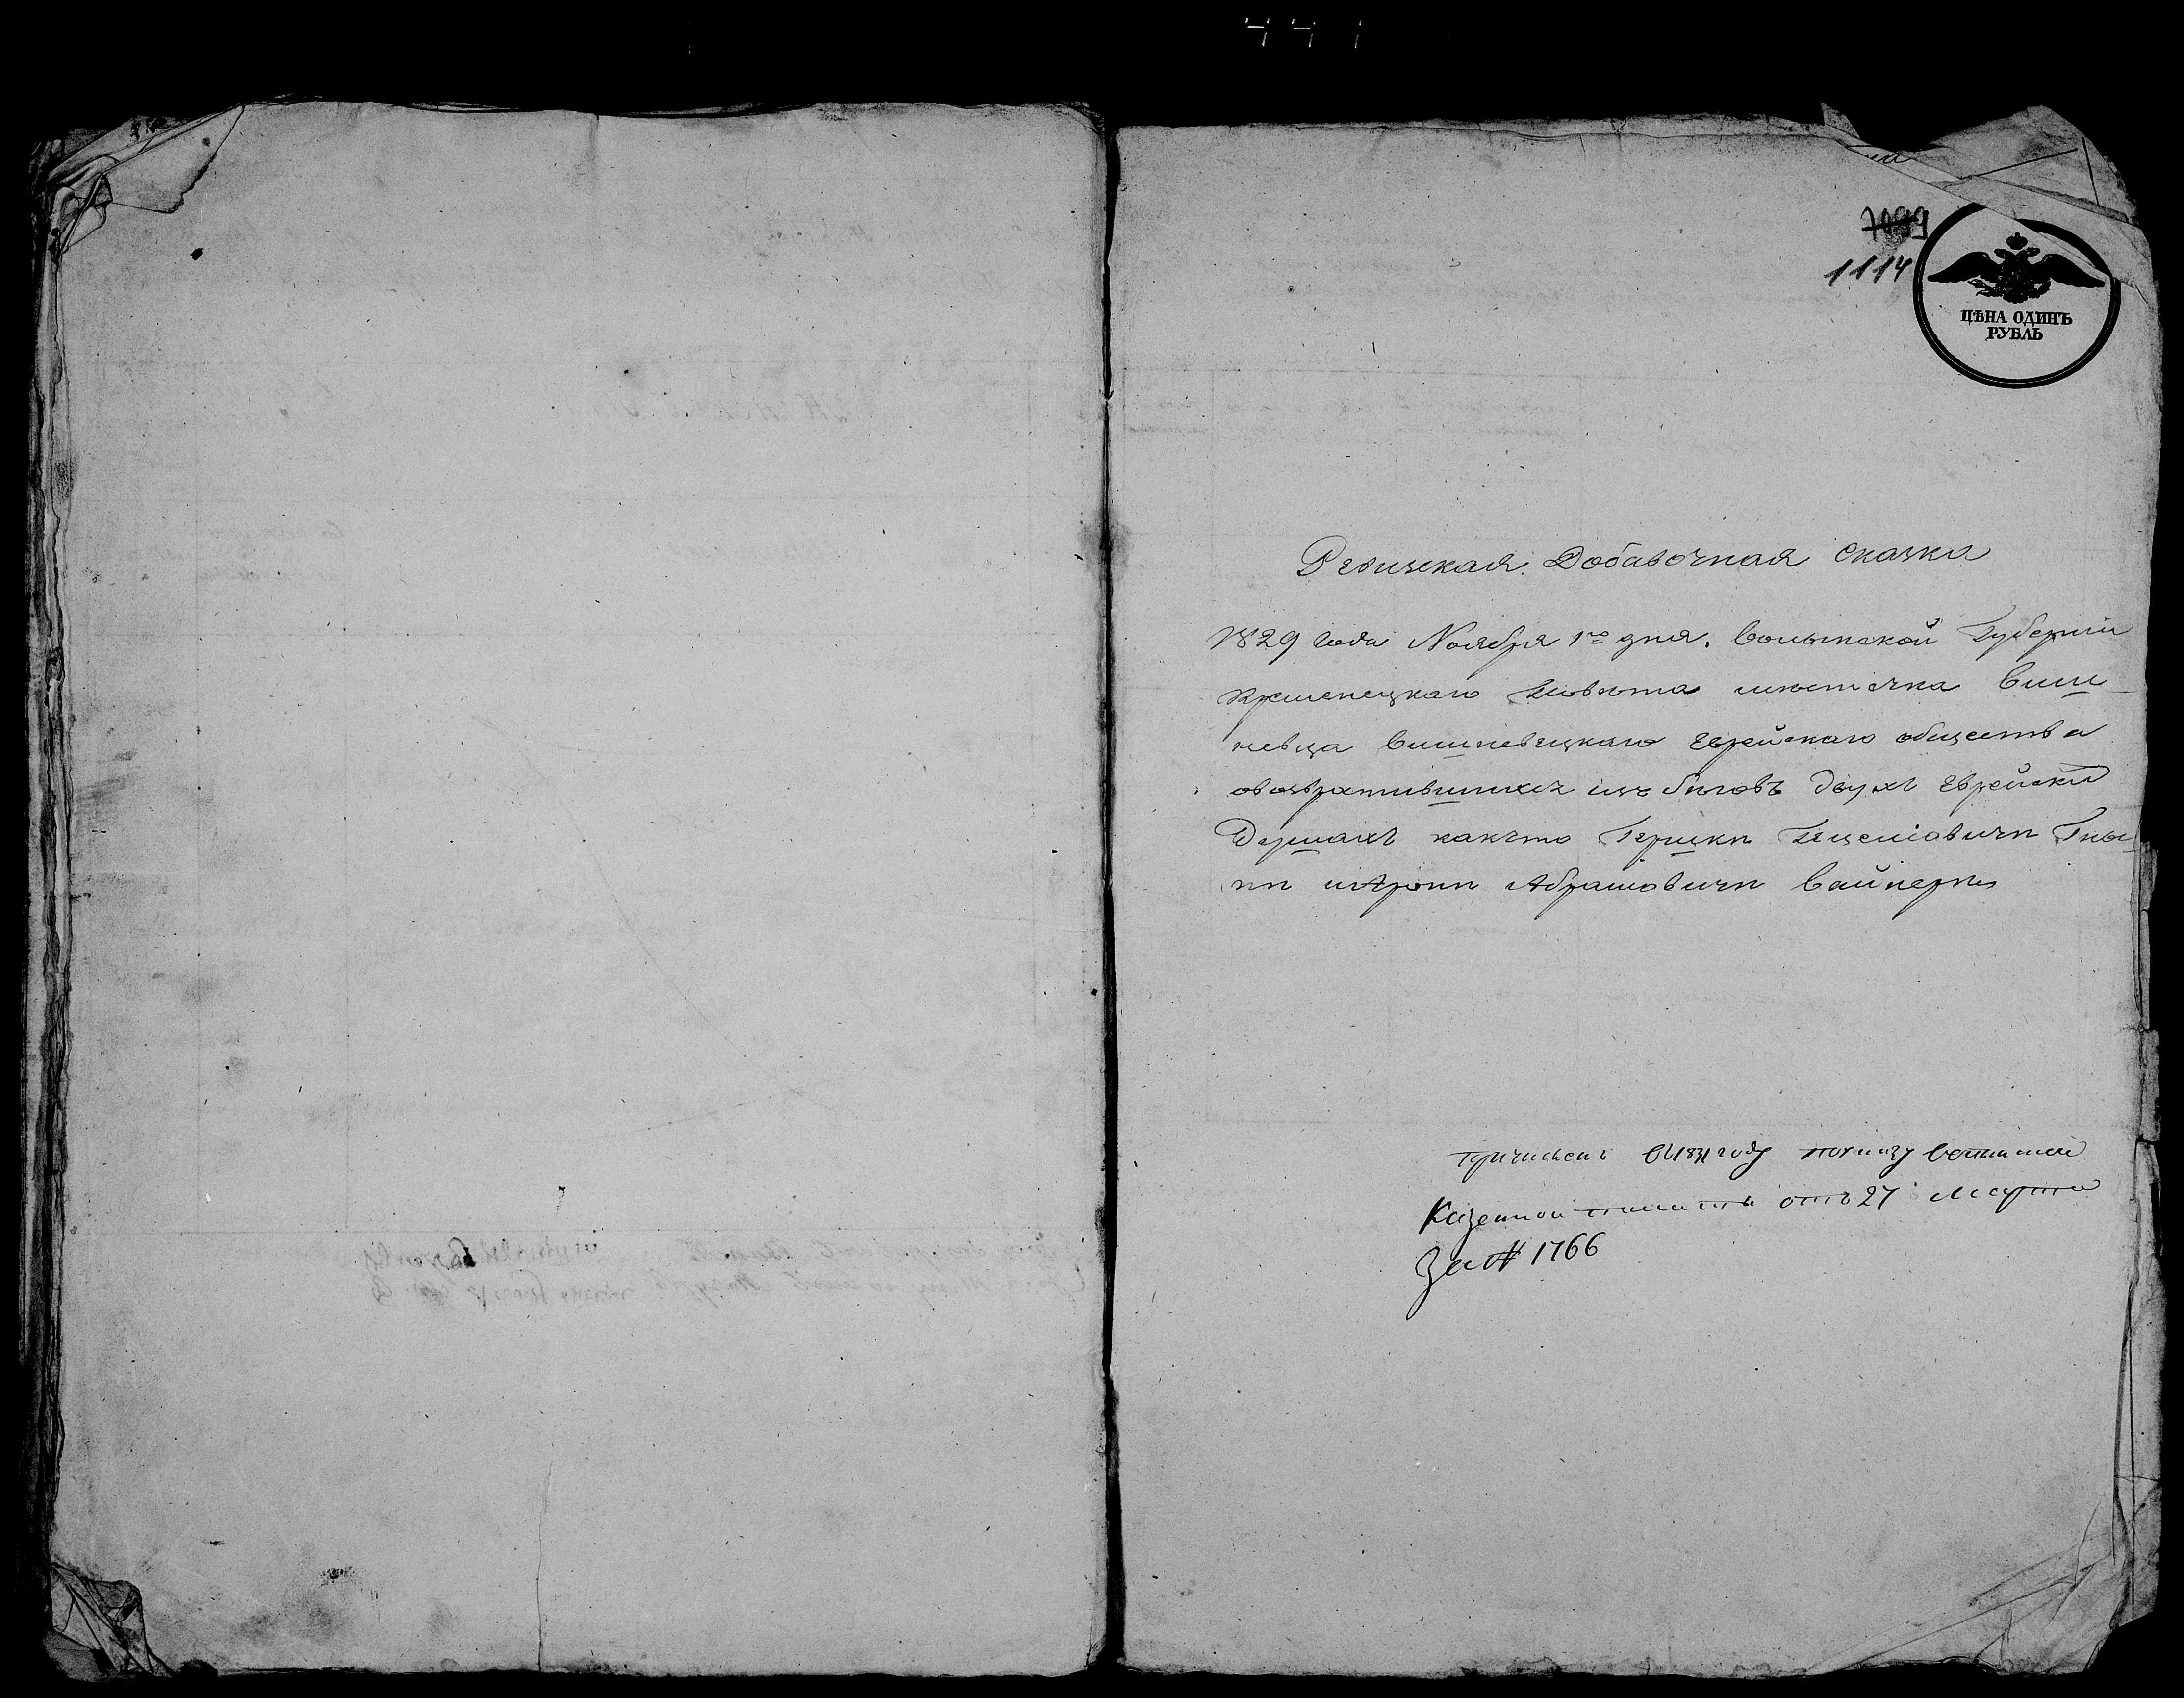 441
7099
1114
ЦѢНА ОДИНЪ
РУБЛЬ
Ревизская Добавочная сказка
1829 года Ноября 1го дня. Волынской Губернiи
Кременецкаго Повѣта мѣстечка Виш-
невца Вишневецкаго Еврейскаго общества
овозвратившихся изъ бѣговъ двухъ Еврейски
Душахъ какъто Гершкѣ
нѣ иАронѣ Абрамовичѣ Вайнерѣ
причислен въ1831году поуказу волынской
Казенной палаты отъ 27 Марта
За № 1766